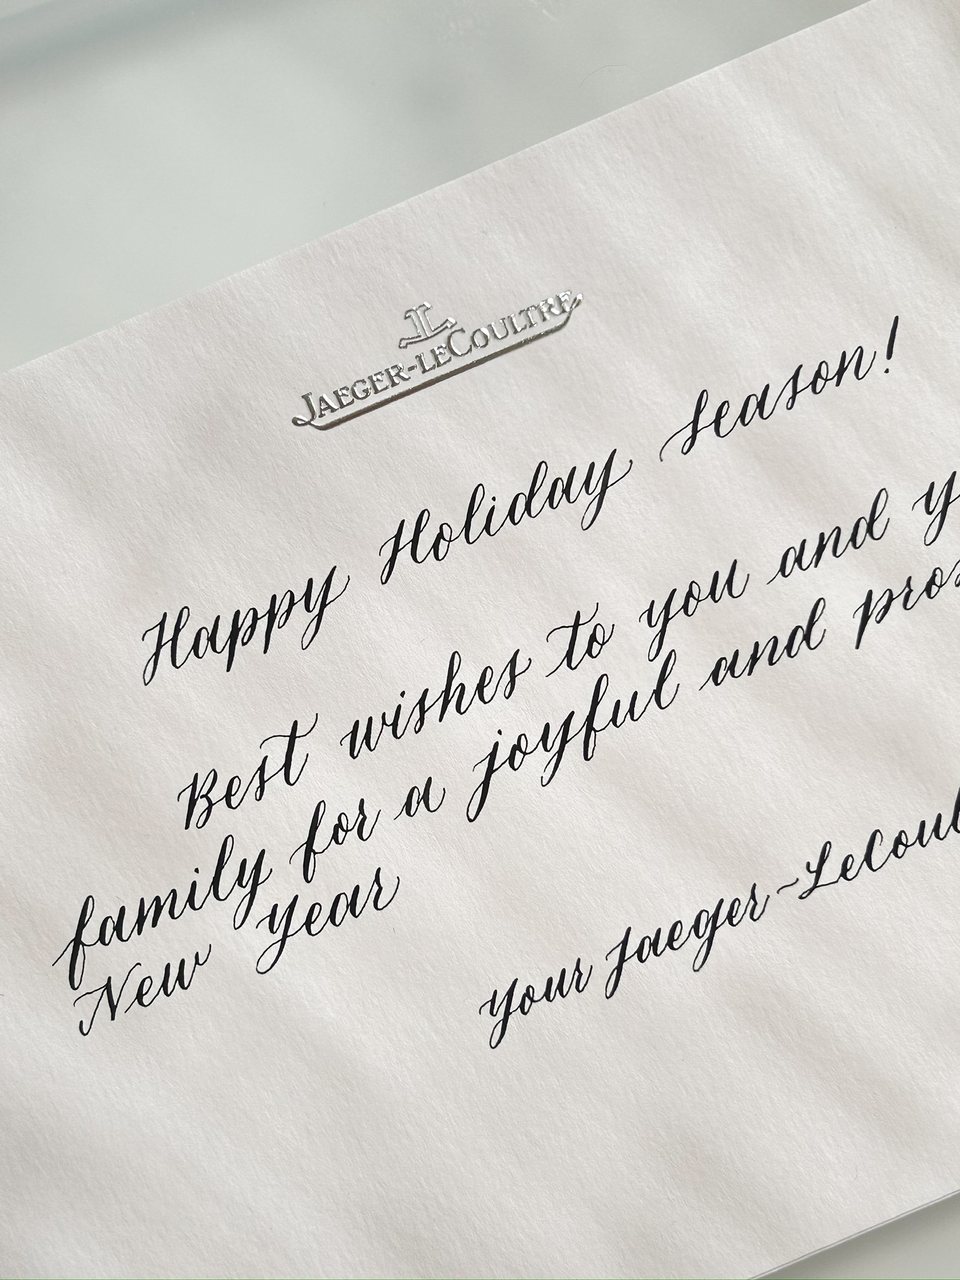 JL
JAEGER-LECOULTRE
Happy Holiday season!
Best wishes to you and y
family for a joyful and pros
New Year
Your Jaeger~LeCoul